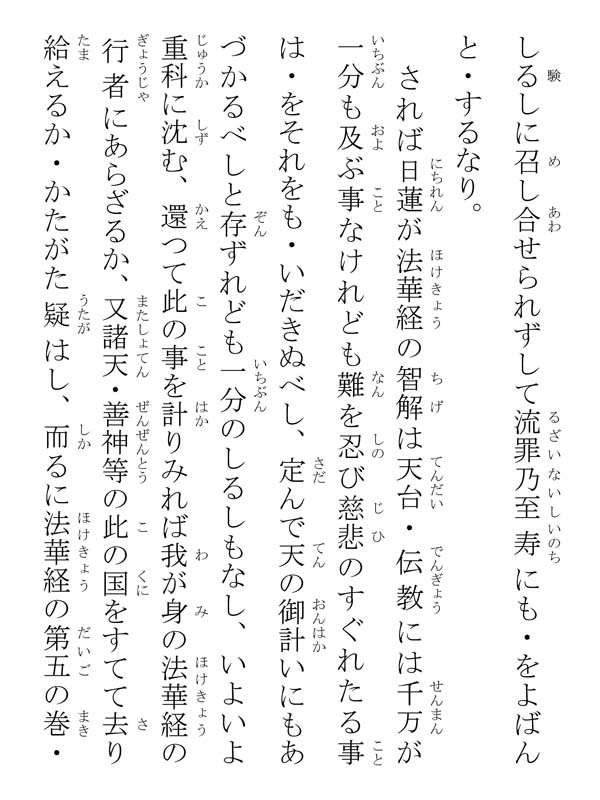 しるしに召し合せられずして流罪乃至寿にも・をよばん
と・するなり。
されば日蓮が法華経の智解は天台・伝教には千万が
一分も及ぶ事なけれども難を忍び慈悲のすぐれたる事
は・をそれをも・いだきぬべし、定んで天の御計いにもあ
づかるべしと存ずれども一分のしるしもなし、いよいよ
重科に沈む、還つて此の事を計りみれば我が身の法華経の
行者にあらざるか、又諸天・善神等の此の国をすてて去り
給えるか・かたがた疑はし、而るに法華経の第五の巻・